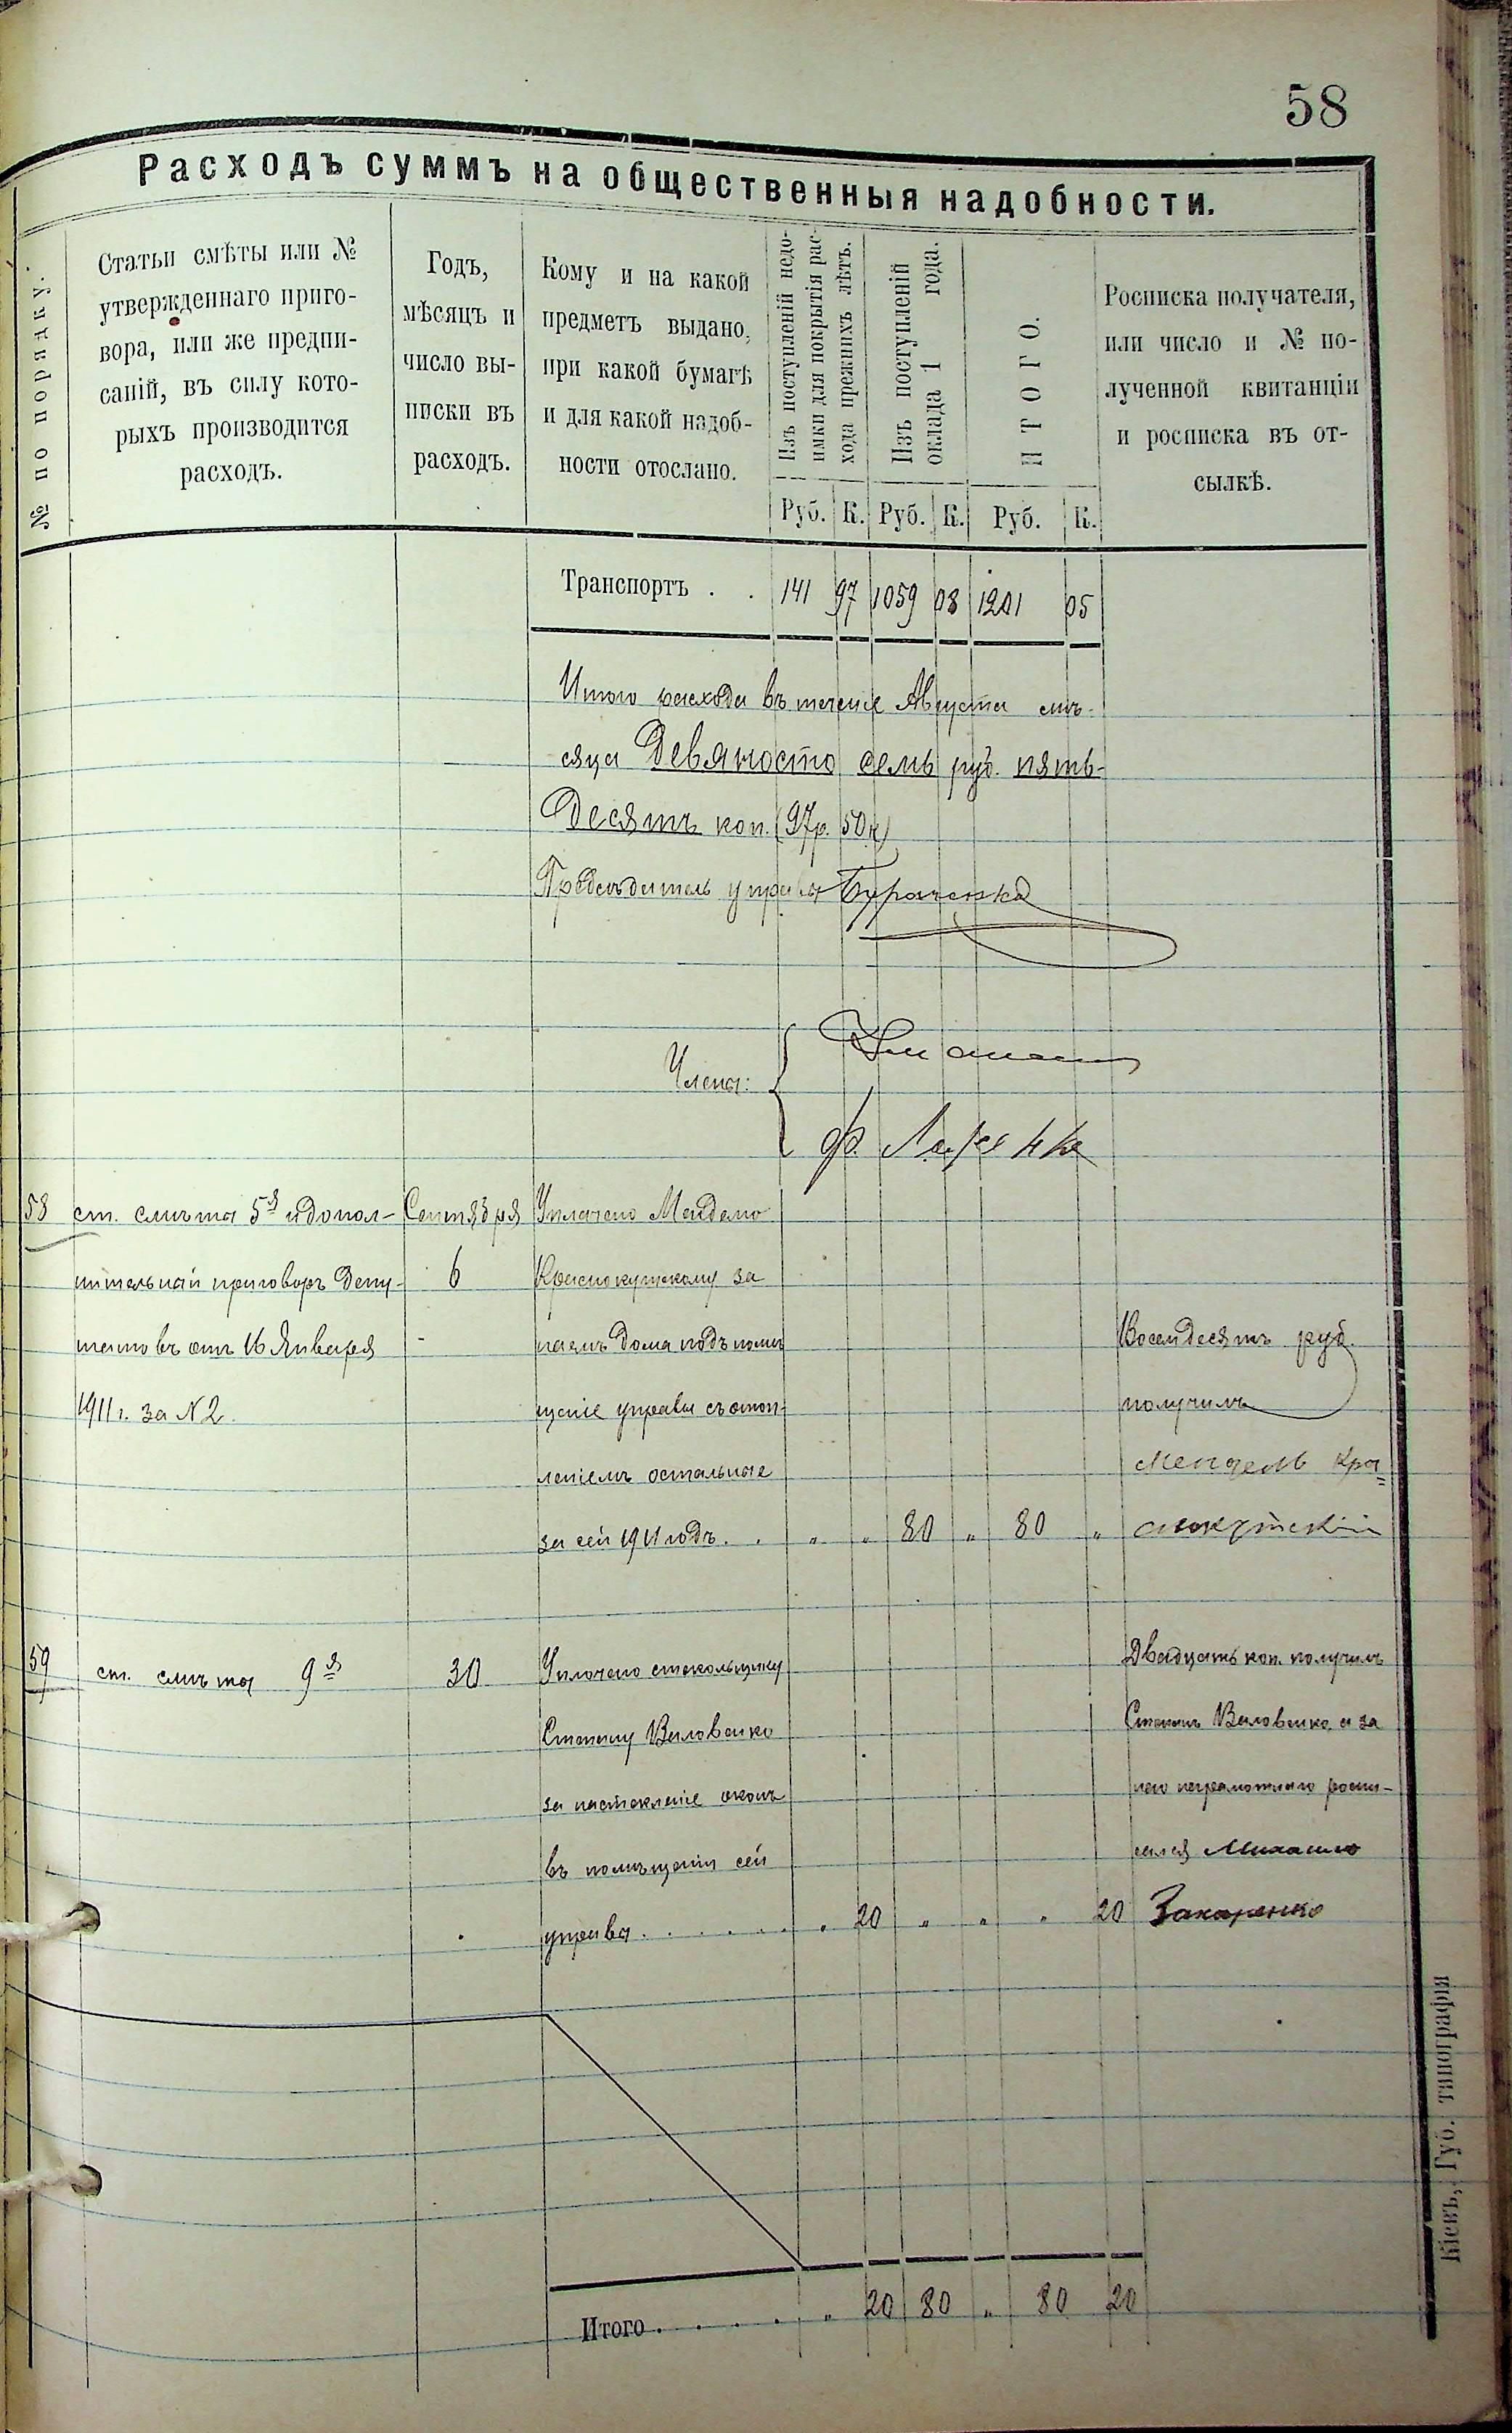 58
Расходъ суммъ на общественныя надобности.
№ по порядку.
Статьи смѣты или №
утвержденнаго приго-
вора, или же предпи-
саній, въ силу кото-
рыхъ производится
расходъ.
Годъ,
мѣсяцъ и
число вы-
писки въ
расходъ.
Кому и на какой
предметъ выдано,
при какой бумагѣ
и для какой надоб-
ности отослано.
Изъ поступленій недо-
имки для покрытія рас-
хода прежнихъ лѣтъ.
Изъ поступленій
оклада 1 года.
ИТОГО.
Росписка получателя,
или число и № по-
лученной квитанціи
и росписка въ от-
сылкѣ.
Руб. К. Руб. К. Руб. К.
Транспортъ . . 141 97 1059 08 1201 05
Итого расхода въ теченіе Августа мѣ-
сяца Девяносто семь руб. пять-
десятъ коп. (97р. 50к)
Предсѣдатель управы
Члены:
Ф.
58 ст. смѣты 5я и допол-
нительный приговоръ депу-
татовъ отъ 16 Января
1911 г. за N 2.
Сентября
6
Уплачено
Краснокутскому за
наемъ дома подъ помѣ
щеніе управы съ отоп-
леніемъ остальные
за сей 1911 годъ. . „ „ 80 „ 80 „
Восемдесятъ руб.
получилъ
Мендель Кра=
снокутскій
59 ст. смѣты 9я
30
Уплочено стекольщику
Степану Виловенко
за настекленіе оконъ
въ помѣщеніи сей
управы . . . . . . „ 20 „ „ „ 20
Двадцать коп. получилъ
Степанъ Виловенко, а за
него неграмотнаго роспи-
сался Михаило
Захаренко
Итого . . . . . „ 20 80 „ 80 20
Кіевъ, Губ. типографія